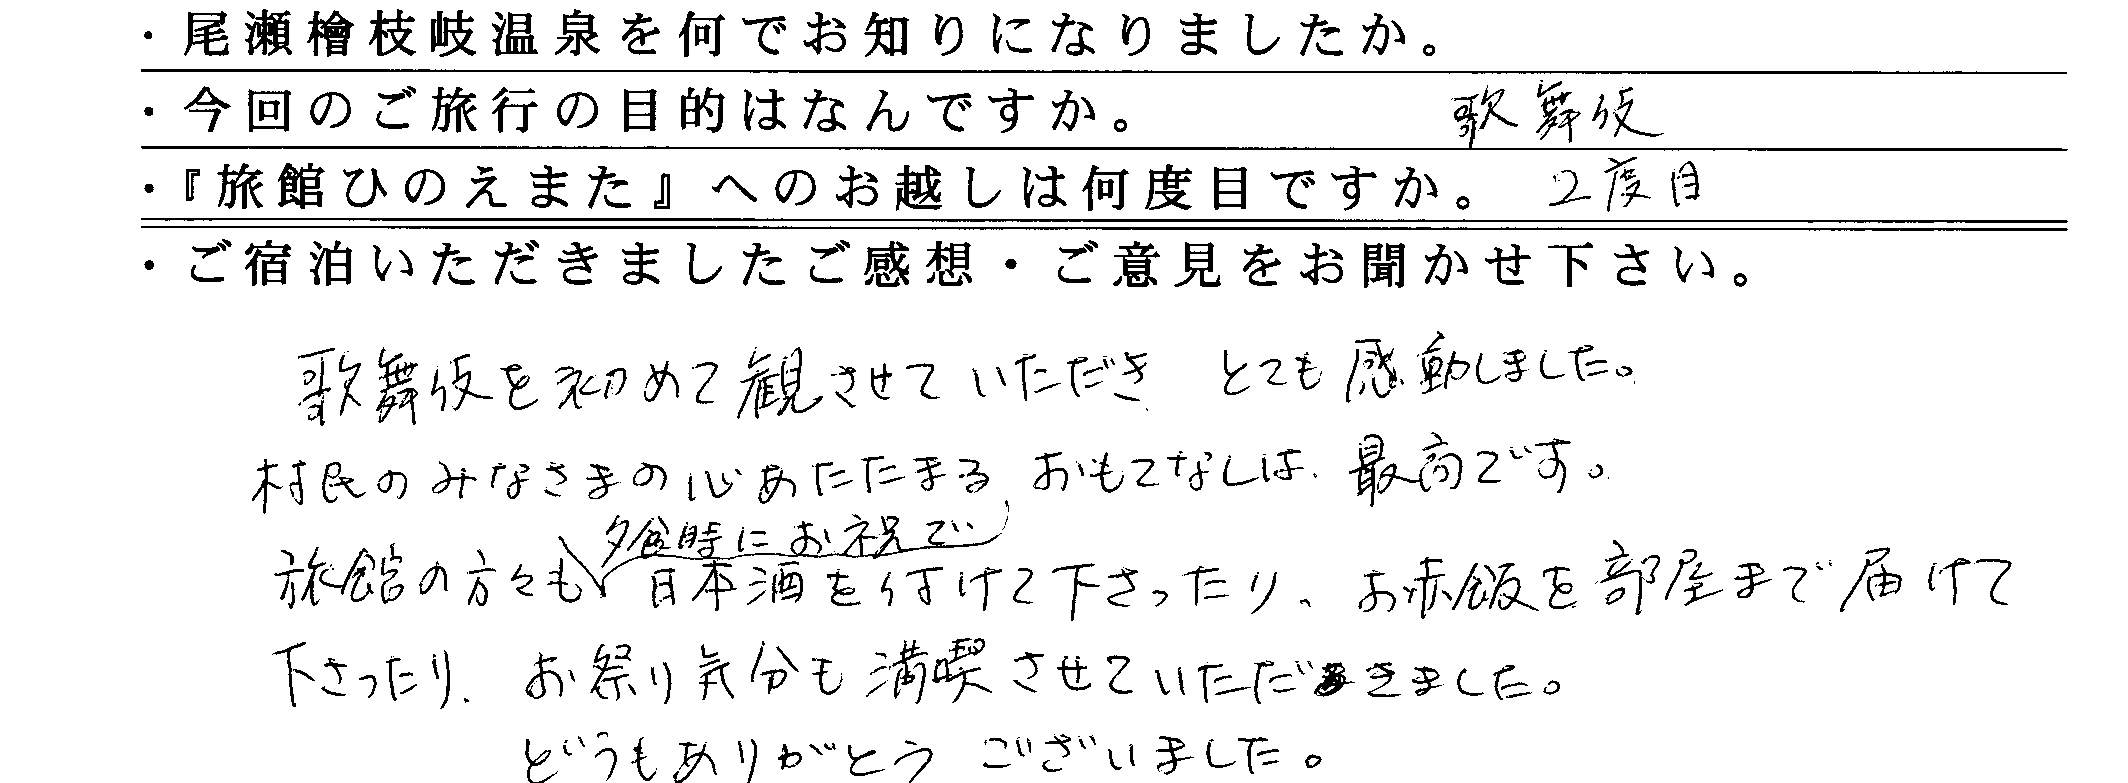 ・尾瀬檜枝岐温泉を何でお知りになりましたか。
・今回のご旅行の目的はなんですか。 歌舞伎
・『旅館ひのえまた』へのお越しは何度目ですか。 2度目
・ご宿泊いただきましたご感想・ご意見をお聞かせ下さい。
歌舞伎を初めて観させていただき とても感動しました。
村民のみなさまの心あたたまる おもてなしは、最高です。
夕食時にお祝で
旅館の方々も 日本酒を付けて下さったり、お赤飯を部屋まで届けて
下さったり、お祭り気分も満喫させていただきました。
どうもありがとう ございました。